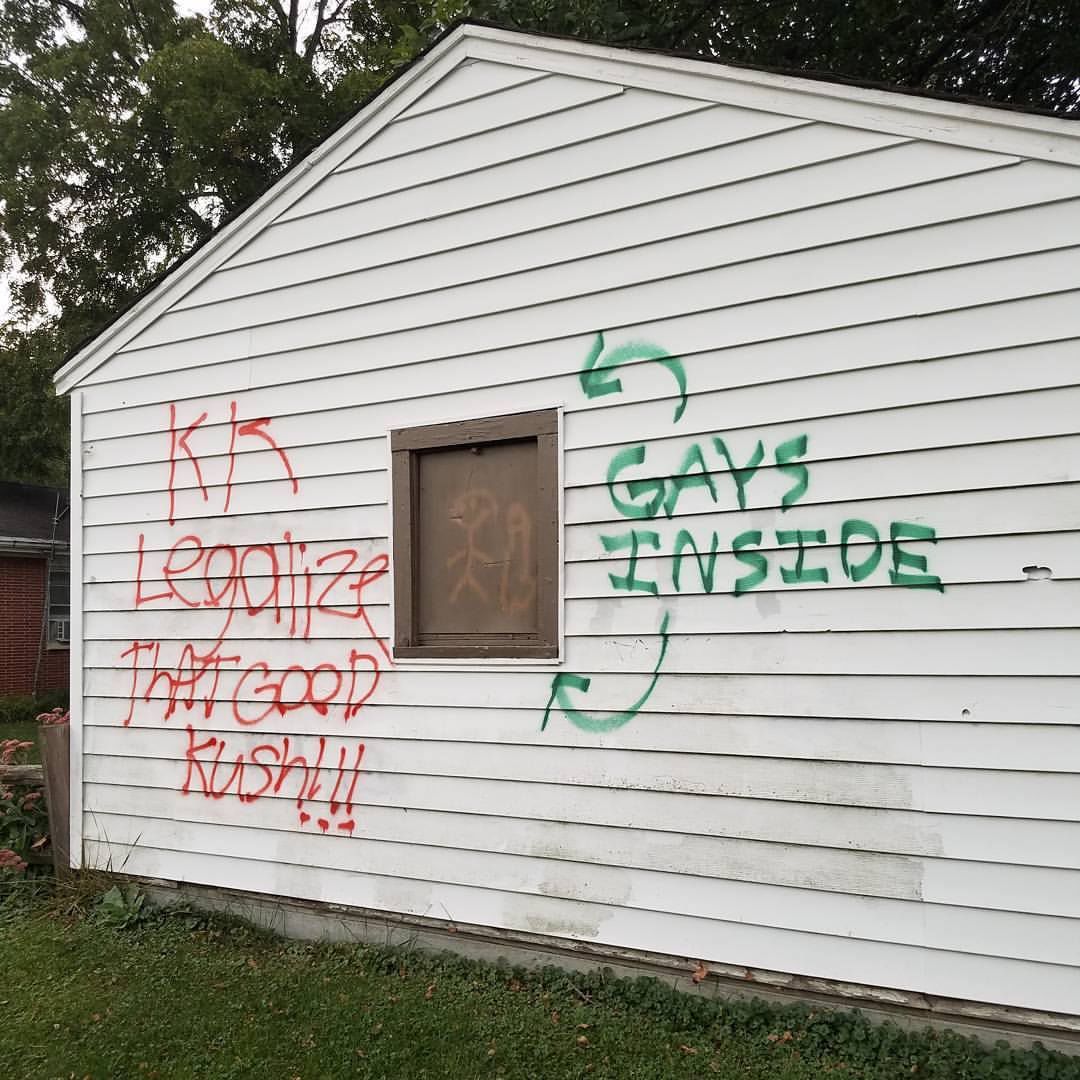 KK
Legalize
THAT GOOD
Kush!!!
GAYS
INSIDE